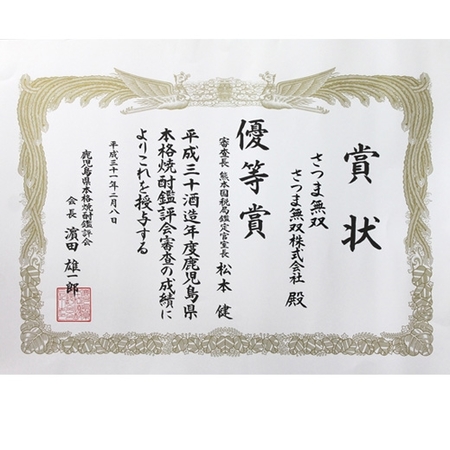 賞状
さつま無双
さつま無双株式会社 殿
優等賞
審査長 熊本国税局鑑定官室長 松本 健
平成三十酒造年度鹿児島県
本格焼酎鑑評会審査の成績に
よりこれを授与する
平成三十一年二月八日
鹿児島県本格焼酎鑑評会
会長 濵田 雄一郎